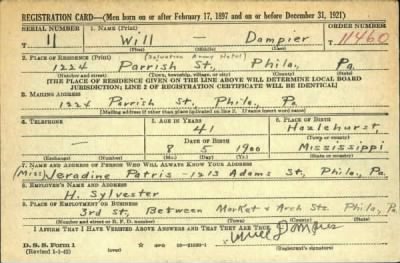 REGISTRATION CARD—(Men born on or after February 17, 1897 and on or before December 31, 1921)
SERIAL NUMBER 1. NAME (Print) ORDER NUMBER
11 Will — Dampier 11460
(First) (Middle) (Last)
2. PLACE OF RESIDENCE (Print) (Salvation Army Hotel)
1224 Parrish St., Phila., Pa.
(Number and street) (Town, township, village, or city) (County) (State)
[THE PLACE OF RESIDENCE GIVEN ON THE LINE ABOVE WILL DETERMINE LOCAL BOARD
JURISDICTION; LINE 2 OF REGISTRATION CERTIFICATE WILL BE IDENTICAL]
3. MAILING ADDRESS
1224 Parrish St., Phila., Pa
[Mailing address if other than place indicated on line 2. If same insert word same]
4. TELEPHONE 5. AGE IN YEARS 6. PLACE OF BIRTH
41 Hazlehurst,
DATE OF BIRTH (Town or county)
8 5 1900 Mississippi
(Exchange) (Number) (Mo.) (Day) (Yr.) (State or country)
7. NAME AND ADDRESS OF PERSON WHO WILL ALWAYS KNOW YOUR ADDRESS
(Miss) Jeradine Patris — 1213 Adams St., Phila., Pa.
8. EMPLOYER'S NAME AND ADDRESS
H. Sylvester
9. PLACE OF EMPLOYMENT OR BUSINESS
3rd St., Between Market & Arch Sts. Phila., Pa.
(Number and street or R. F. D. number) (Town) (County) (State)
I AFFIRM THAT I HAVE VERIFIED ABOVE ANSWERS AND THAT THEY ARE TRUE.
D. S. S. Form 1
(Revised 1-1-42) (Registrant's signature)